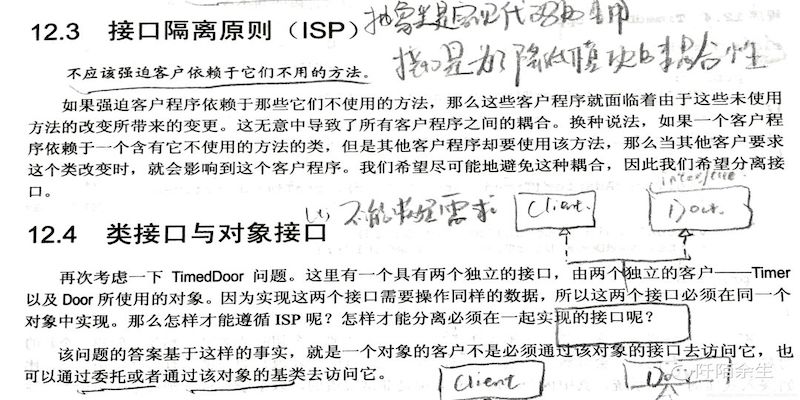 12.3 接口隔离原则（ISP）
抽象类是实现代码的复用
接口是为了降低模块的耦合性
不应该强迫客户依赖于它们不用的方法。
如果强迫客户程序依赖于那些它们不使用的方法，那么这些客户程序就面临着由于这些未使用
方法的改变所带来的变更。这无意中导致了所有客户程序之间的耦合。换种说法，如果一个客户程
序依赖于一个含有它不使用的方法的类，但是其他客户程序却要使用该方法，那么当其他客户要求
这个类改变时，就会影响到这个客户程序。我们希望尽可能地避免这种耦合，因此我们希望分离接
口。
interface
不能 需求
Client
Door
12.4 类接口与对象接口
再次考虑一下 TimedDoor 问题。这里有一个具有两个独立的接口，由两个独立的客户——Timer
以及 Door 所使用的对象。因为实现这两个接口需要操作同样的数据，所以这两个接口必须在同一个
对象中实现。那么怎样才能遵循 ISP 呢？怎样才能分离必须在一起实现的接口呢？
该问题的答案基于这样的事实，就是一个对象的客户不是必须通过该对象的接口去访问它，也
可以通过委托或者通过该对象的基类去访问它。
Client
阡陌余生